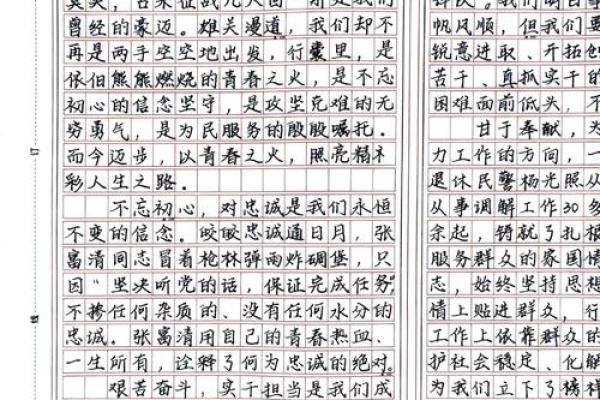 曾经的豪迈。雄关漫道，我们却不
再是两手空空地出发，行囊里，是
依旧熊熊燃烧的青春之火，是不忘
初心的信念坚守，是攻坚克难的无
穷勇气，是为民服务的殷殷嘱托。
而今迈步，以青春之火，照亮精彩
彩人生之路。
不忘初心，对忠诚是我们永恒
不变的信念。皎皎忠诚通日月，张
富清同志冒着枪林弹雨炸碉堡，只
因“坚决听党的话，保证完成任务”，
不掺任何杂质的、没有任何水分的
忠诚。张富清用自己的青春热血、
一生所有，诠释了何为忠诚的绝对。
艰苦奋斗，实干担当是我们成
帆风顺，但我们要
锐意进取、开拓创
苦干、真抓实干的
困难面前低头，不
甘于奉献，为
力工作的方向，一
退休民警杨光照从
从事调解工作30多
余起，铸就了扎根
服务群众的家国情
志，始终坚持思想
情上贴进群众，行
工作上依靠群众的
护社会稳定、化解
为我们立下了榜
订
线